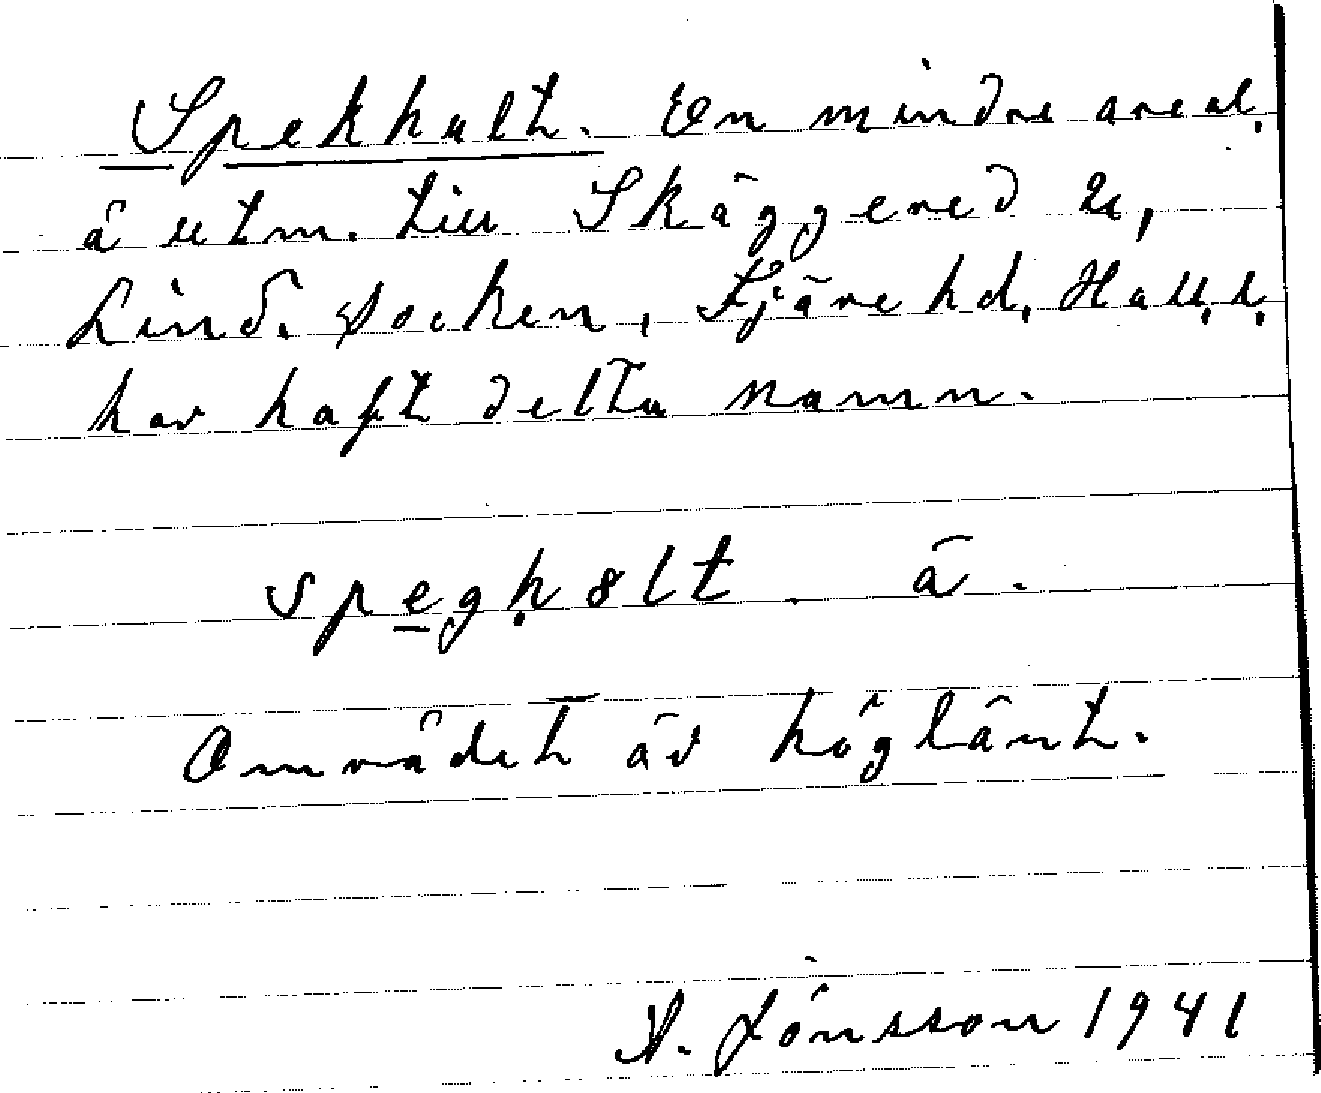 Spekhult. En mindre areal
å utm. till Skäggered 2u,
Lind. socken, Fjäre hd, Hall.l.
har haft detta namn.
spegh8lt. ā.
Området är höglänt.
A. Jönsson 1941